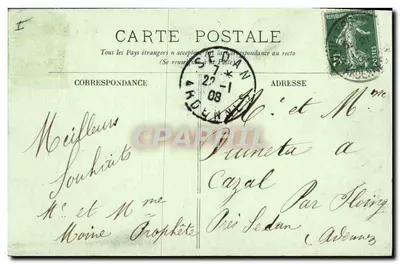 CARTE POSTALE
Tous les Pays étrangers n'acceptent pas la Correspondance au recto
(Se renseigner à la Poste)
CORRESPONDANCE
ADRESSE
SEDAN
7 *
22 -1
08
ARDENNES
Meilleurs
Souhaits
Mr et Mme
Moine Prophète
Mr et Mme
a
Cazal
Par Floing
Près Sedan
(Ardennes)
CPAPHIL